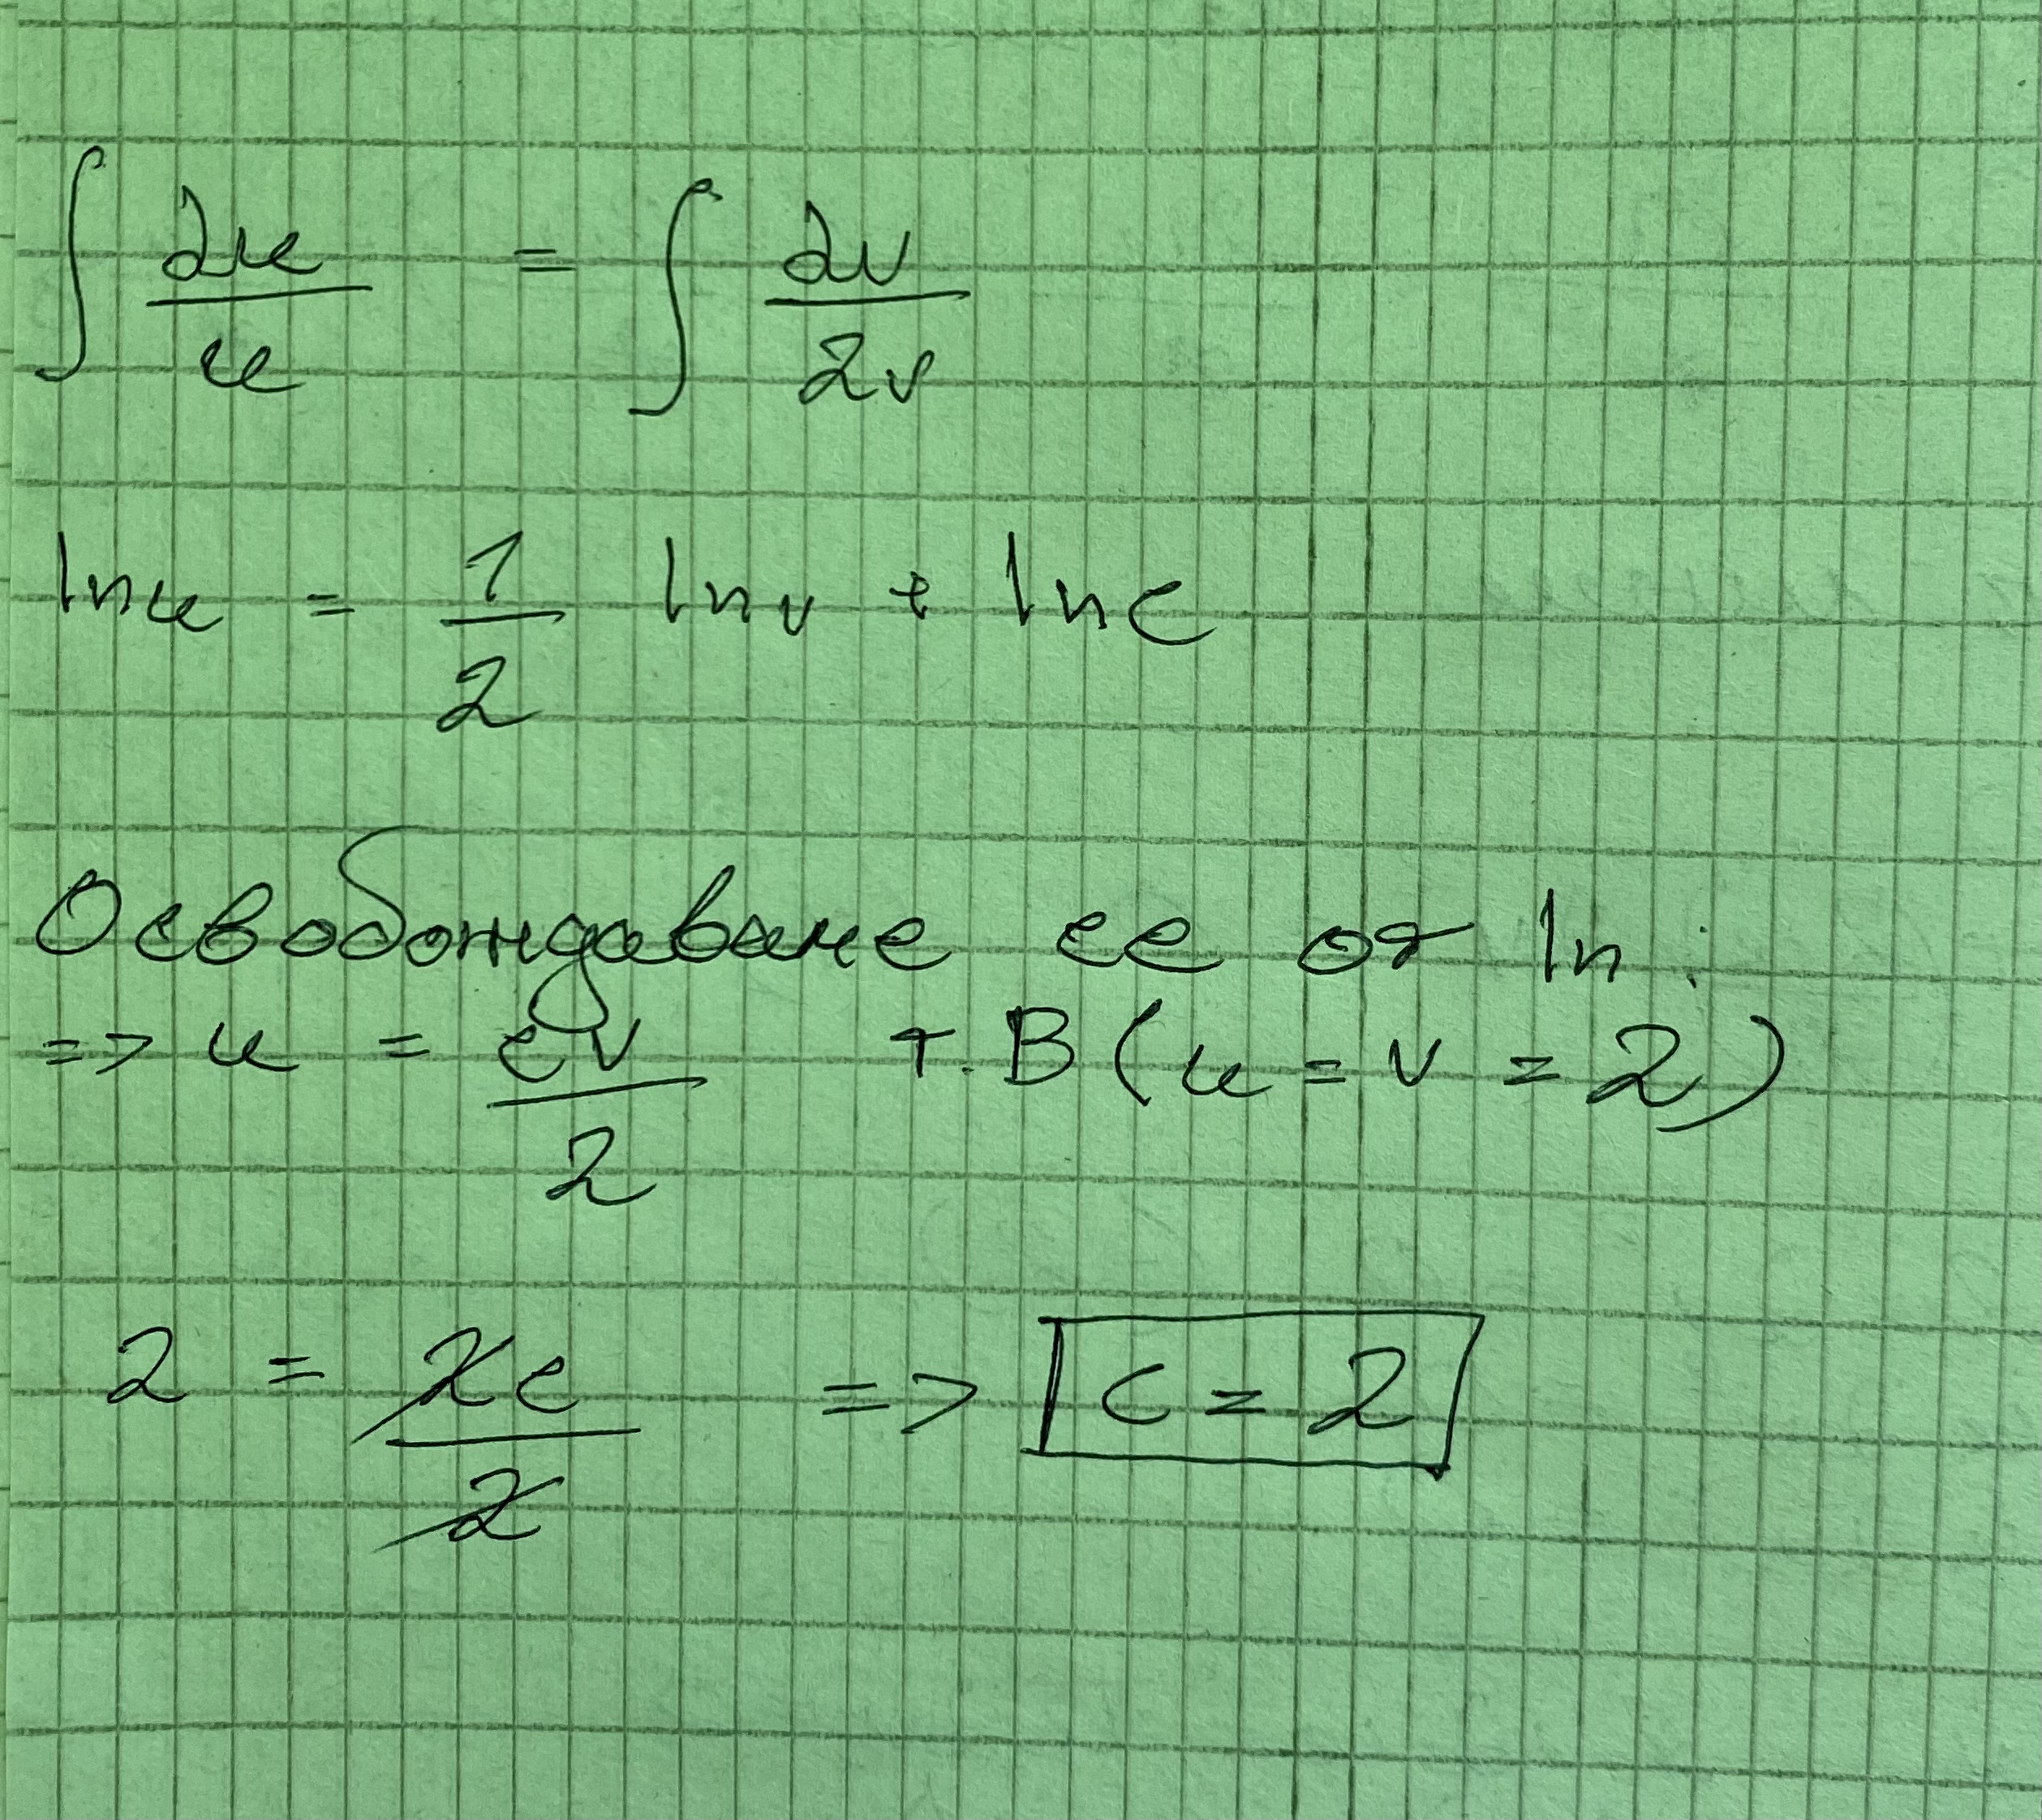 ∫ du/u = ∫ dv/2v
ln u = 1/2 ln v + ln c
Освобождаваме се от ln:
=> u = cv/2 т. B (u = v = 2)
2 = 2c/2 => c = 2